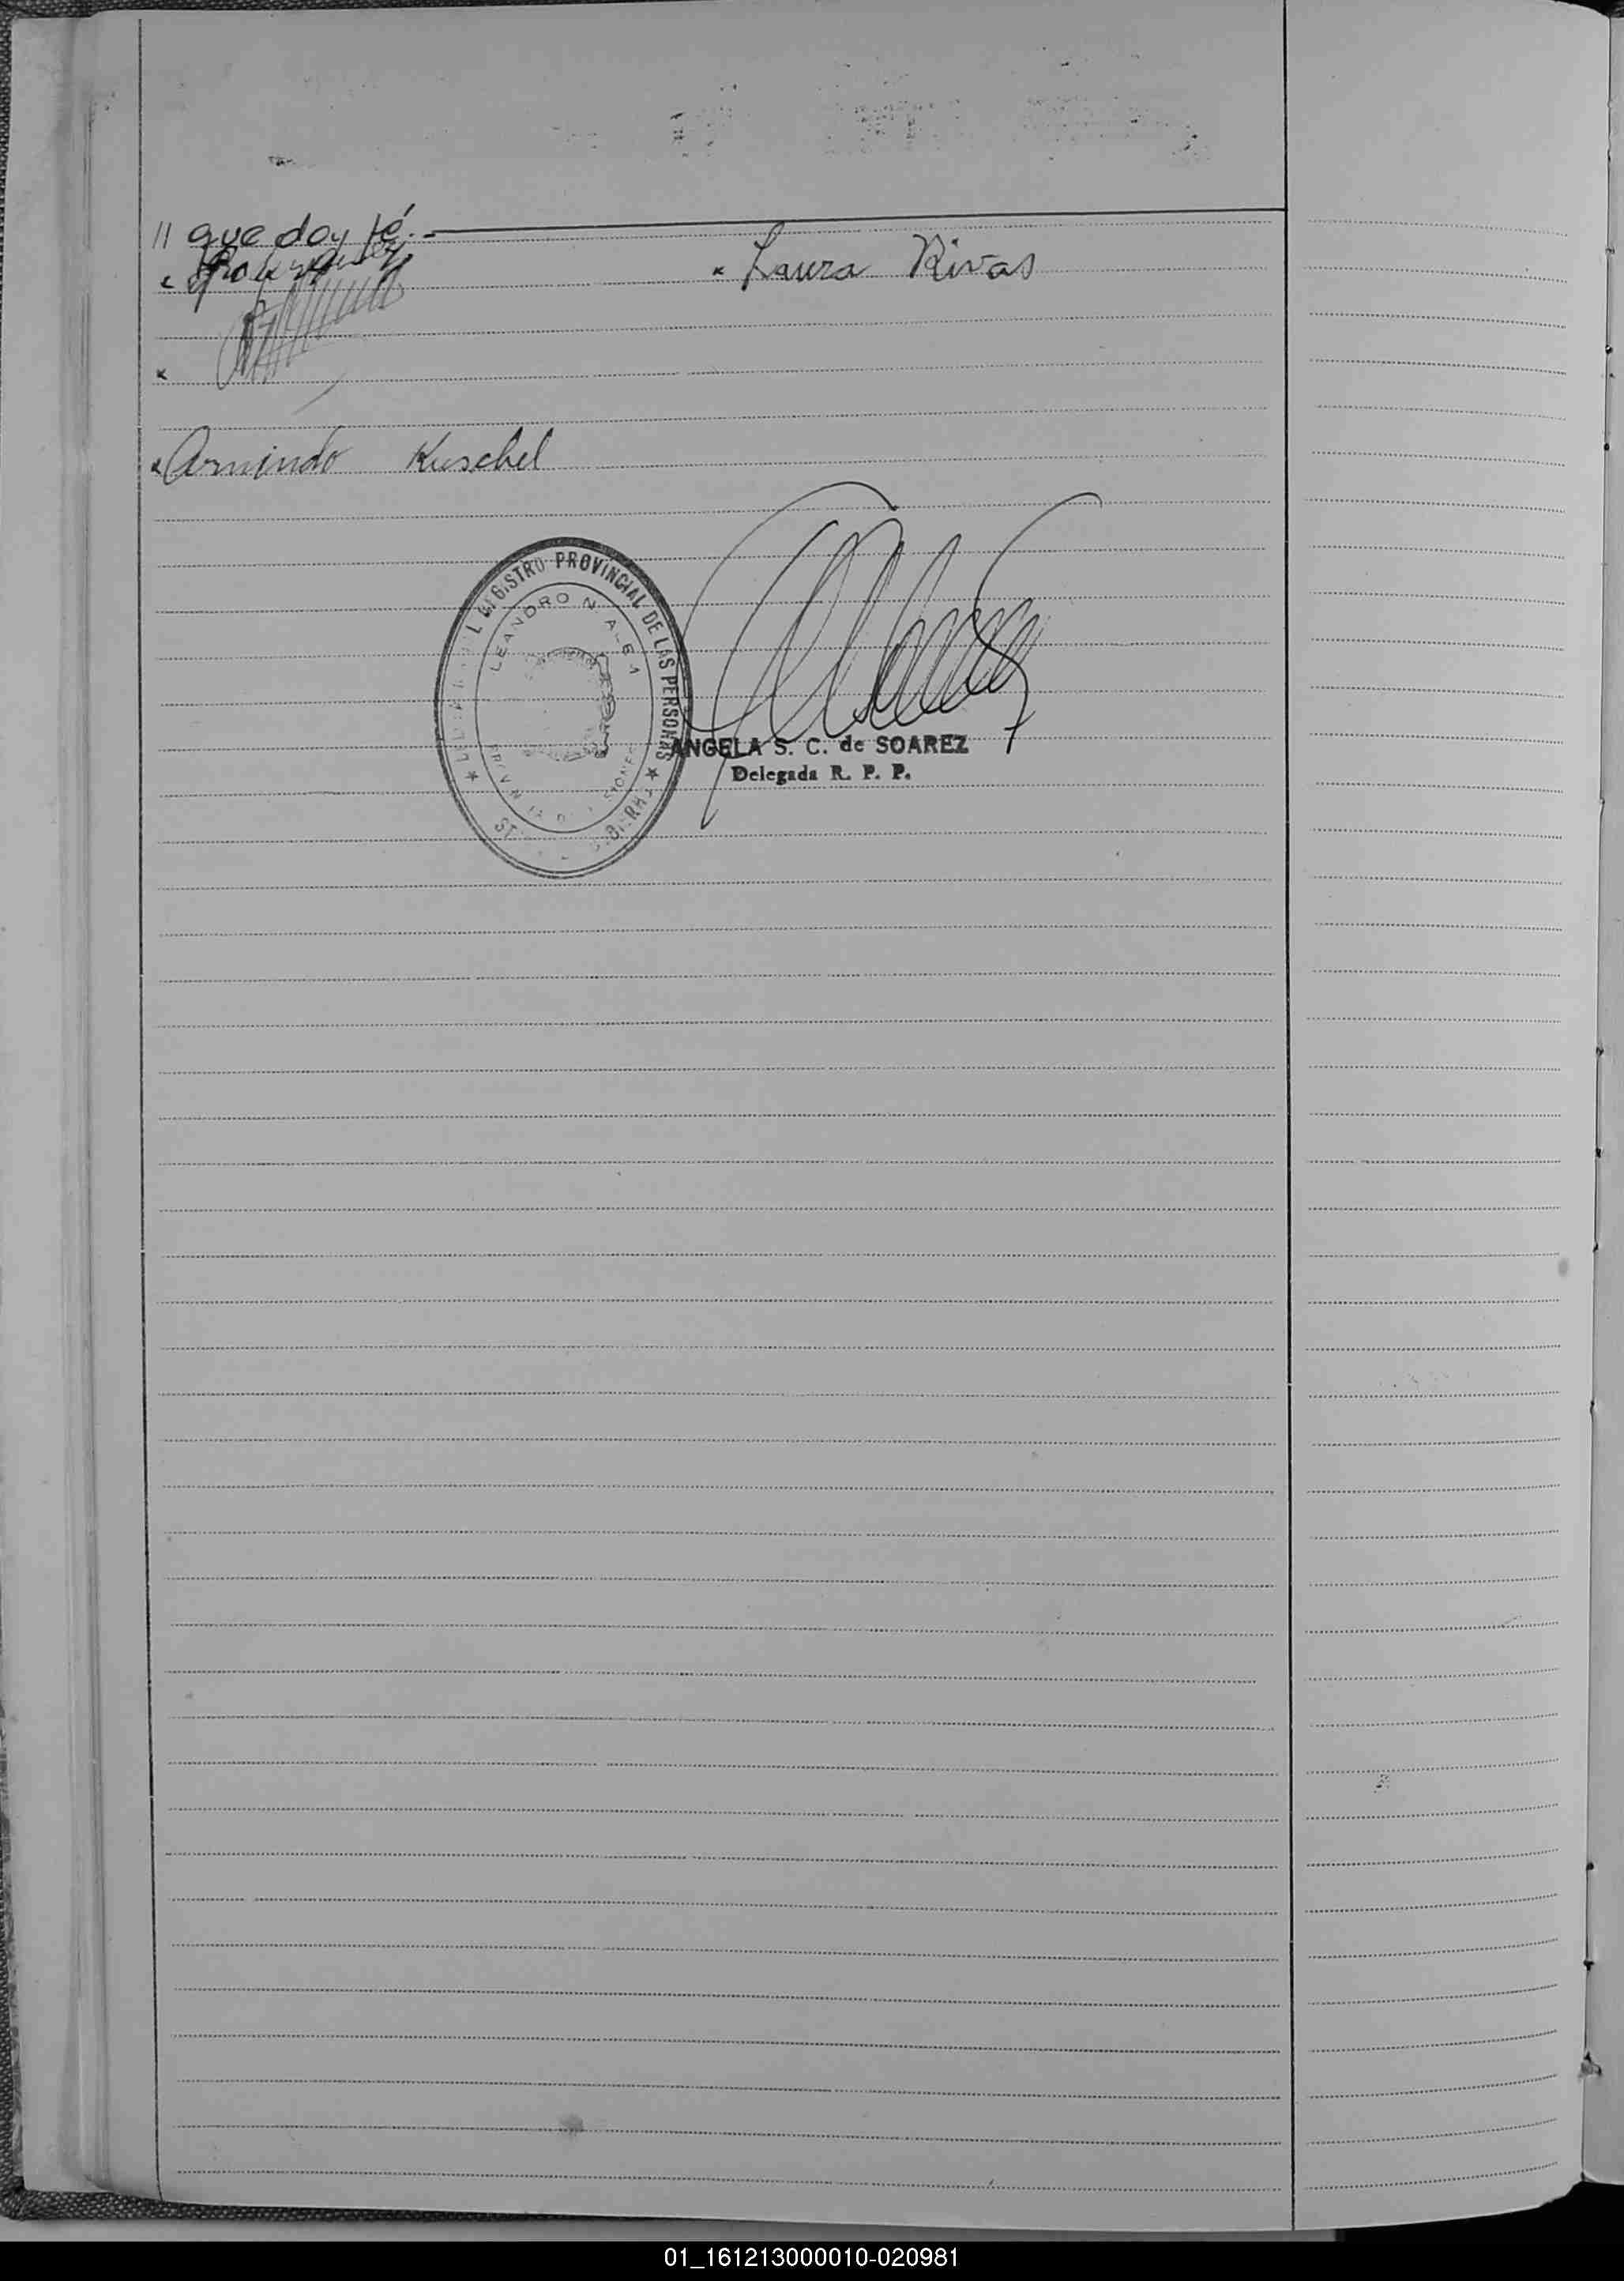 // que doy fé.-
Laura Rivas
Armindo Kuschel
REGISTRO PROVINCIAL DE LAS PERSONAS
LEANDRO N. ALEM
ANGELA S. C. de SOAREZ
Delegada R. P. P.
01_161213000010-020981